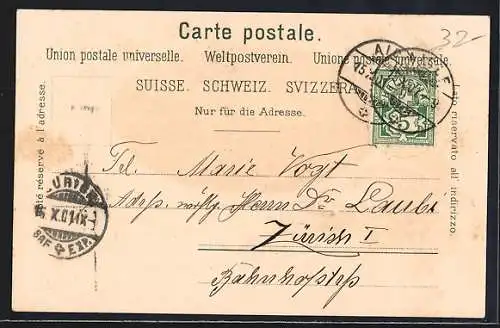 Carte postale.
32-
Union postale universelle. Weltpostverein. Unione postale universale.
SUISSE. SCHWEIZ. SVIZZERA
Nur für die Adresse.
Côté réservé à l'adresse.
Lato riservato all'indirizzo.
Frl. Marie Vogt
Adrs. Herrn Dr Laubi
Zürich I
Bahnhofstrs
X.01
EXP.
5